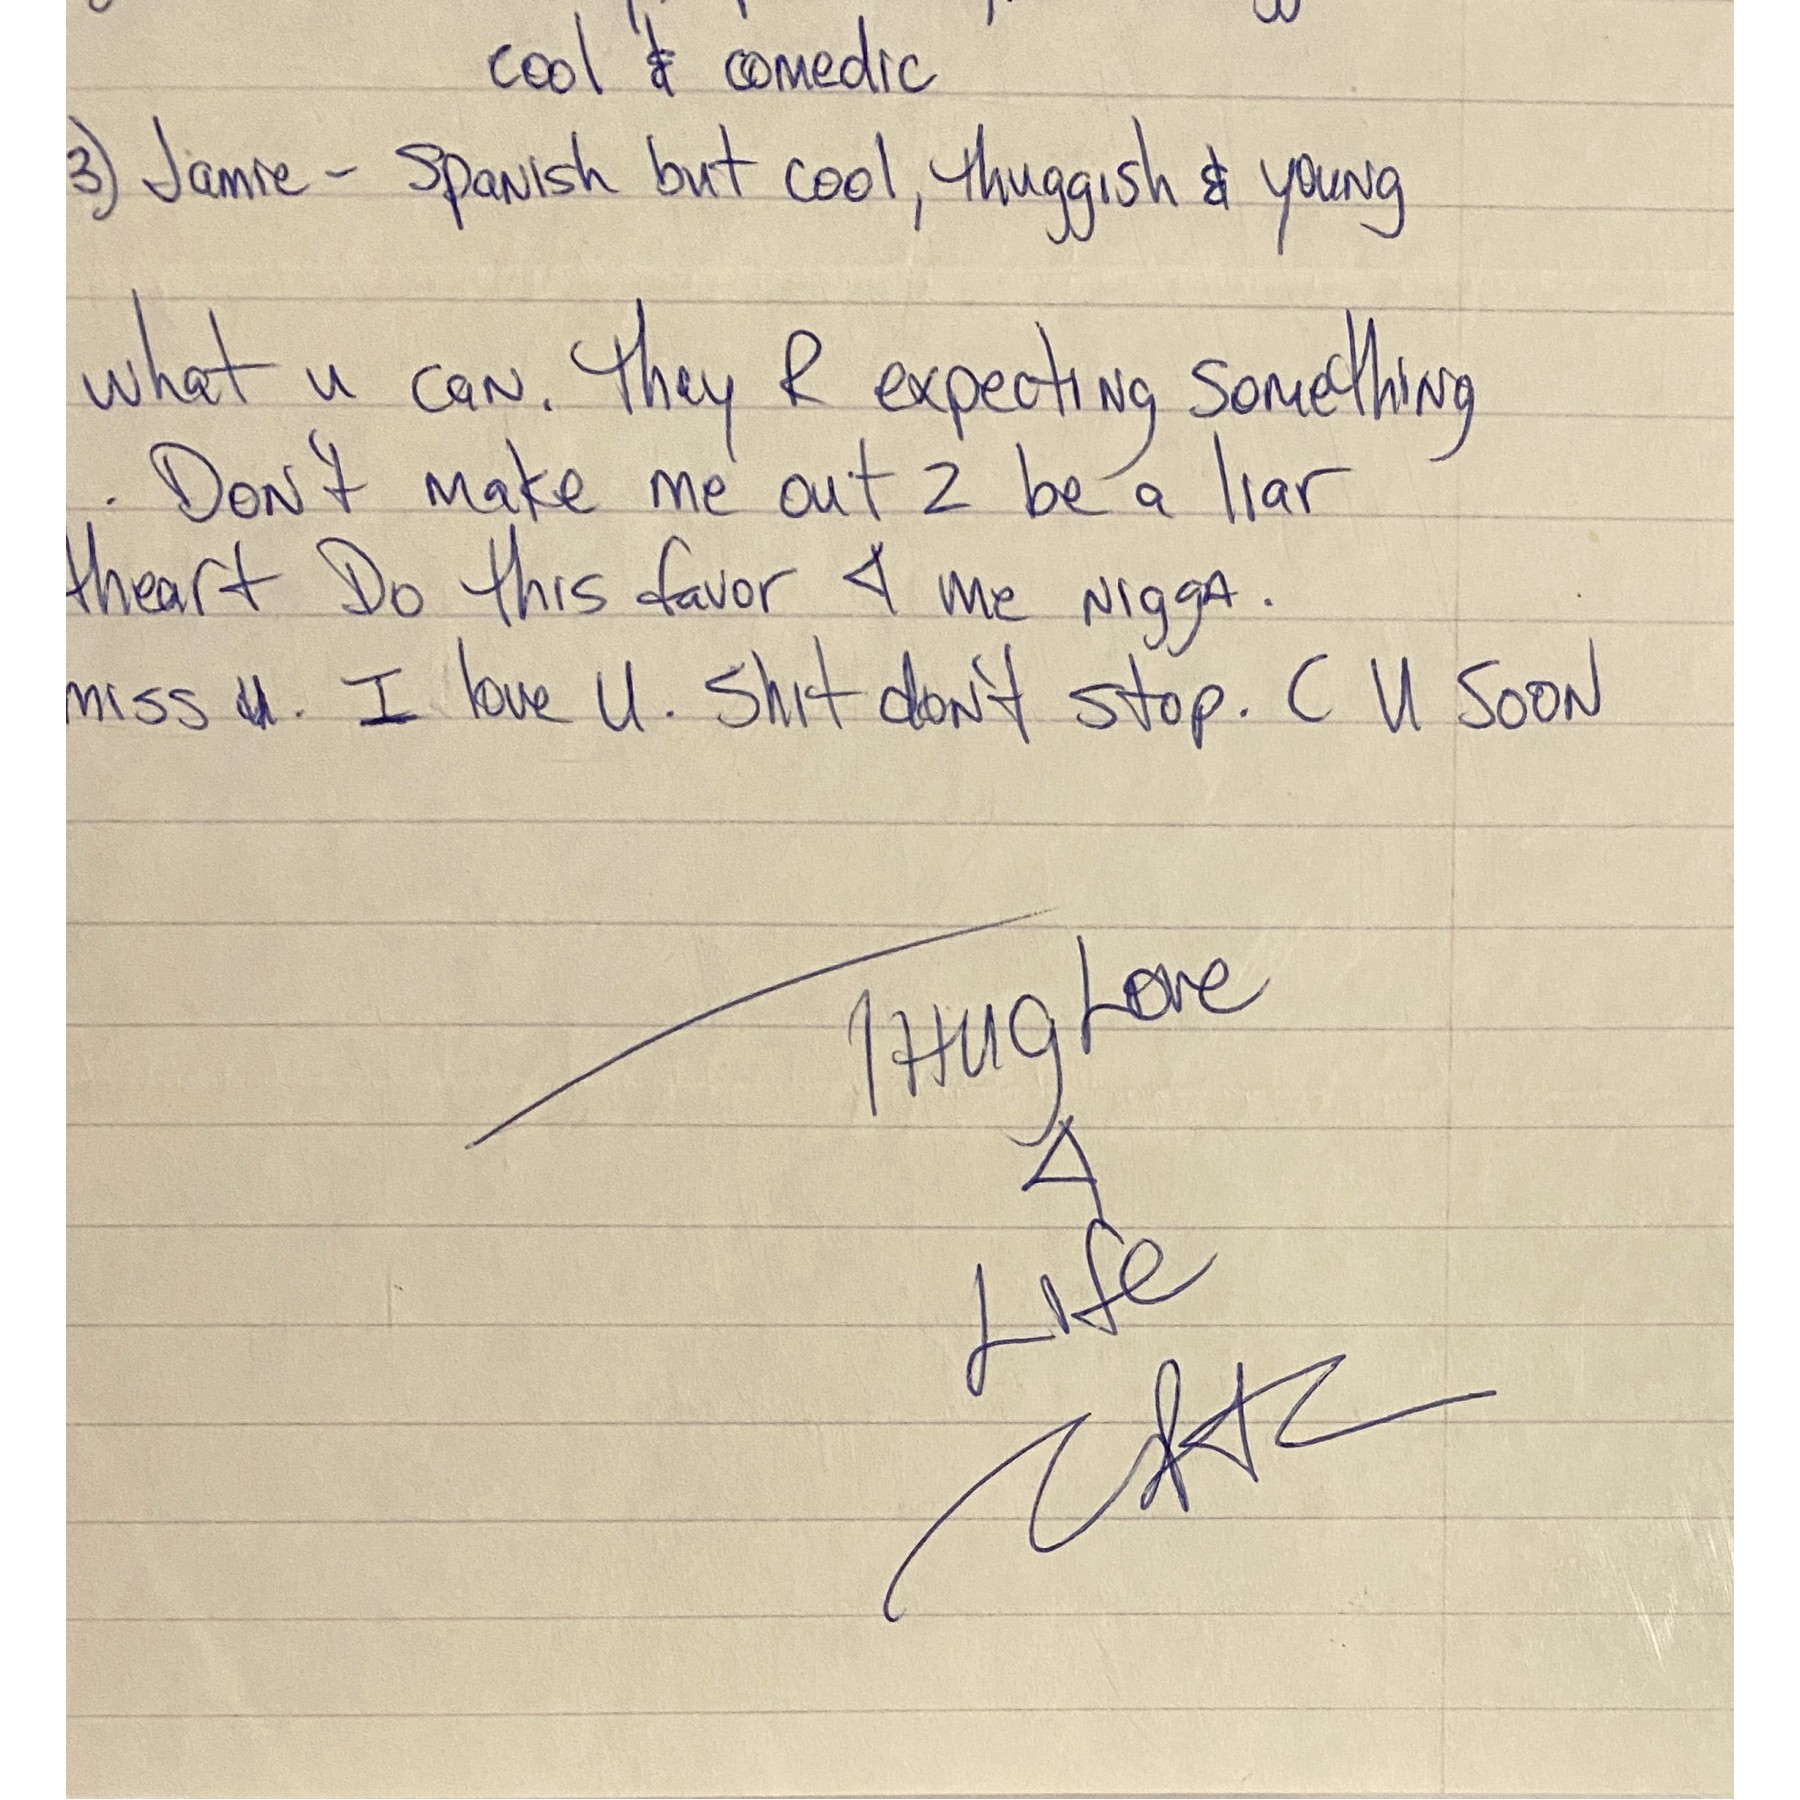 cool & comedic
3) Jamie - Spanish but cool, thuggish & young
what u can. They R expecting something
. Don't make me out 2 be a liar
theart Do this favor 4 me Nigga.
miss u. I love U. Shit don't stop. C U SOON
THUg Love
4
Life